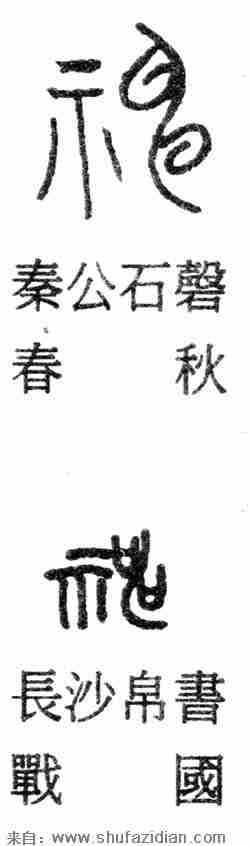 神
秦公石磬
春秋
神
長沙帛書
戰國
来自：www.shufazidian.com